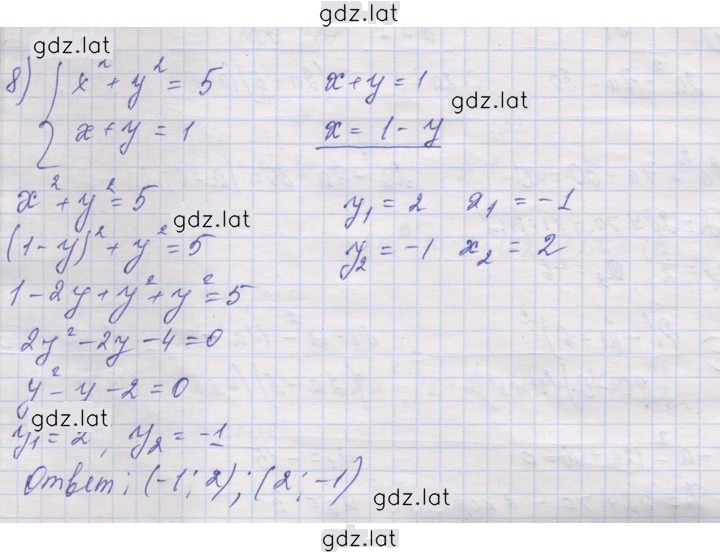 gdz.lat
gdz.lat
8) { x² + y² = 5
x + y = 1
x + y = 1
gdz.lat
x = 1 - y
x² + y² = 5
gdz.lat
(1 - y)² + y² = 5
1 - 2y + y² + y² = 5
2y² - 2y - 4 = 0
y² - y - 2 = 0
gdz.lat
y₁ = 2, y₂ = -1
y₁ = 2 x₁ = -1
y₂ = -1 x₂ = 2
Ответ: (-1; 2); (2; -1)
gdz.lat
gdz.lat